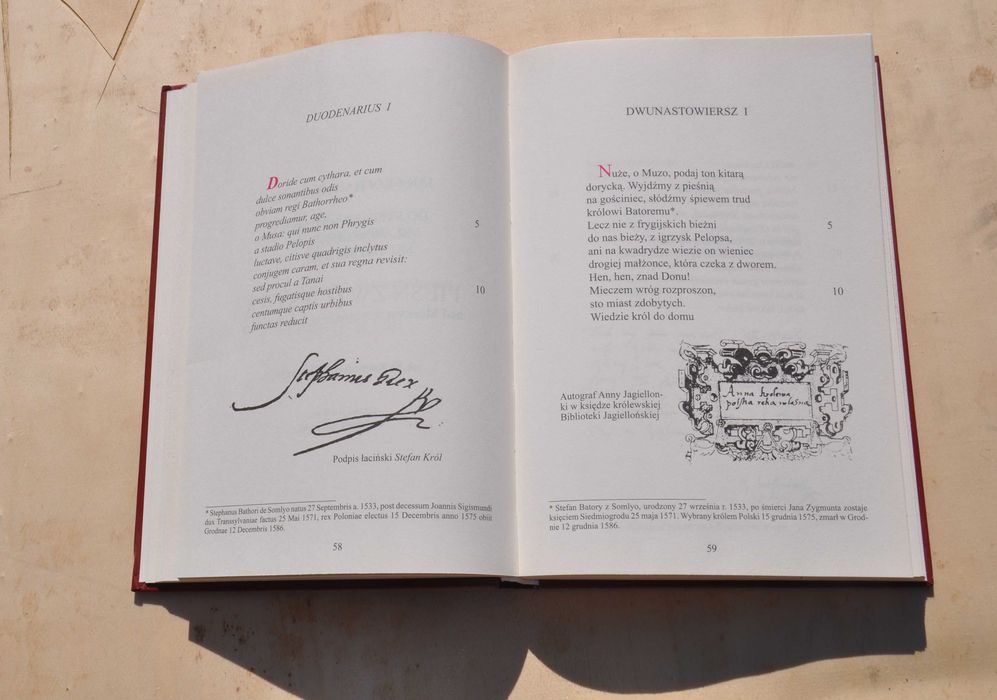 DUODENARIUS I
Doride cum cythara, et cum
dulce sonantibus odis
obviam regi Bathorrheo*
progrediamur, age,
o Musa: qui nunc non Phrygis 5
a stadio Pelopis
luctave, citisve quadrigis inclytus
conjugem caram, et sua regna revisit:
sed procul a Tanai
cesis, fugatisque hostibus 10
centumque captis urbibus
functas reducit
Stephanus Rex
Podpis łaciński Stefan Król
* Stephanus Bathori de Somlyo natus 27 Septembris a. 1533, post decessum Joannis Sigismundi
dux Transsylvaniae factus 25 Mai 1571, rex Poloniae electus 15 Decembris anno 1575 obiit
Grodnae 12 Decembris 1586.
58
DWUNASTOWIERSZ I
Nuże, o Muzo, podaj ton kitarą
dorycką. Wyjdźmy z pieśnią
na gościniec, słódźmy śpiewem trud
królowi Batoremu*.
Lecz nie z frygijskich bieżni 5
do nas bieży, z igrzysk Pelopsa,
ani na kwadrydze wiezie on wieniec
drogiej małżonce, która czeka z dworem.
Hen, hen, znad Donu!
Mieczem wróg rozproszon, 10
sto miast zdobytych.
Wiedzie król do domu
Autograf Anny Jagiellon-
ki w księdze królewskiej
Biblioteki Jagiellońskiej
Anna krolewa
polska reka wlasna
* Stefan Batory z Somlyo, urodzony 27 września r. 1533, po śmierci Jana Zygmunta zostaje
księciem Siedmiogrodu 25 maja 1571. Wybrany królem Polski 15 grudnia 1575, zmarł w Grod-
nie 12 grudnia 1586.
59